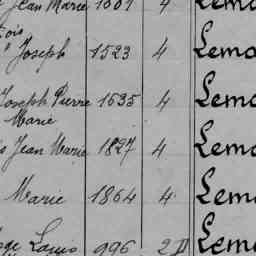 Jean Marie 1801 4 Lemo
ois
" Joseph 1523 4 Lemo
Joseph Pierre 1635 4 Lemo
Marie
s Jean Marie 1827 4 Lemo
Marie 1864 4 Lem
Louis 996 2 D Lemo